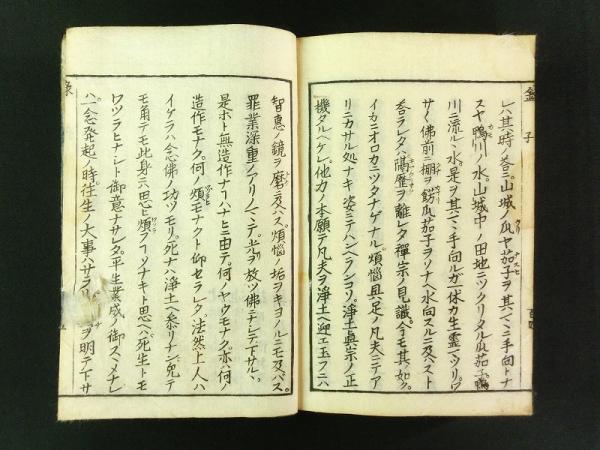 レハ其時ノ答ニ山城ノ瓜ヤ茄子ヲ其マヽ手向トナ
スヤ鴨川ノ水山城中ノ田地ニツクリタル瓜茄子鴨
川ニ流ルヽ水是ヲ其マヽ手向ルガ一休カ生霊マツリゾ
サノミ佛前ニ棚ヲ餝瓜茄子ヲソナヘ水向スルニ及バスト
答ラレタハ隔歴ヲ離レタ禪宗ノ見識今モ其如ク
イカニオロカニツタナゲナル煩惱具足ノ凡夫ニテア
リニカサル処ナキ姿ニテハンヘランコソ淨土眞宗ノ正
機タルヘケレ他力ノ本願テ凡夫ヲ淨土ヘ迎エ玉フニハ
智惠ノ鏡ヲ磨ニ及バス煩惱ノ垢ヲキヨムルニモ及バス
罪業深重ノアリノマヽデ光ヲ放ツ佛ニナシテ下サルヽ
是ホト無造作ナリハナヒニ由テ何ノヤウモナク亦ハ何ノ
造作モナク何ノ煩モナクト仰セラレタ法然上人ハ
イケラハ念佛ノ功ツモリ死ナハ淨土ヘ参リナン兎テ
モ角テモ此身ニハ思ヒ煩フコソナキト思ヘハ死生トモ
ワツラヒナシト御意ナサレタ平生業成ノ御スヽメナレ
ハ一念発起ノ時往生ノ大事ハサラリ
ヲ明テ下サ